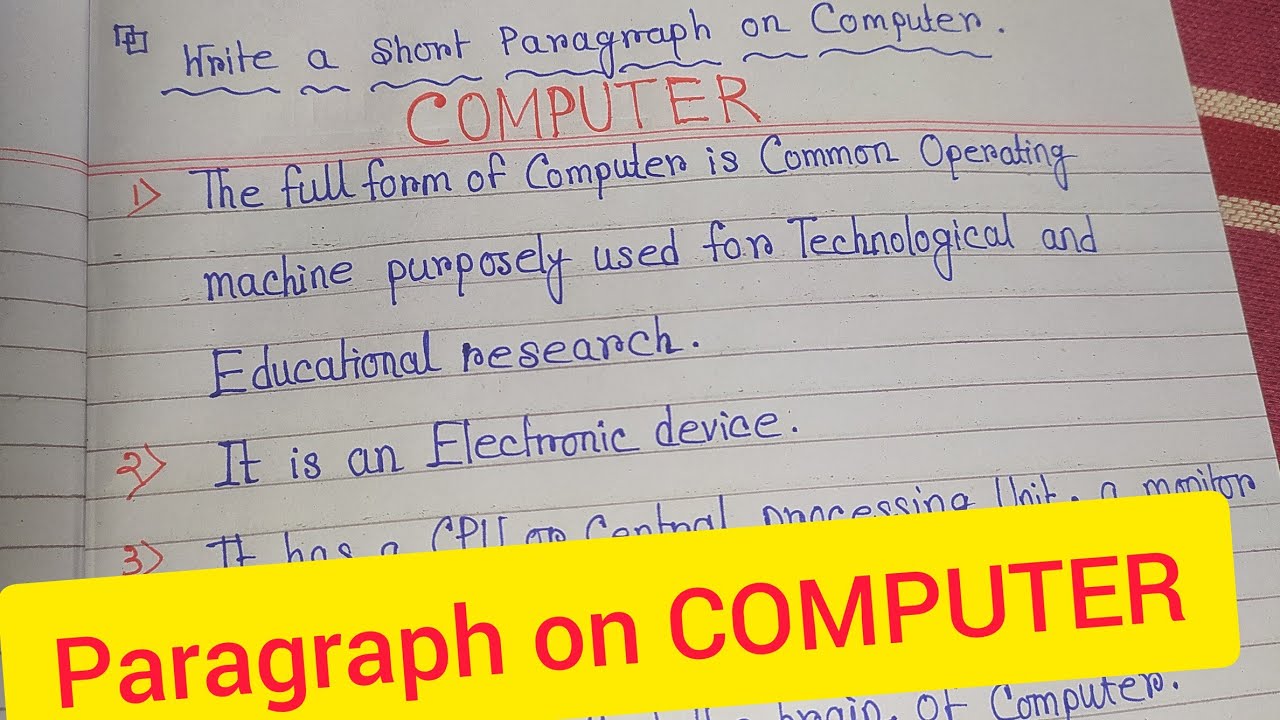 Write a Short Paragraph on Computer.
COMPUTER
1) The full form of Computer is Common Operating
machine purposely used for Technological and
Educational research.
2) It is an Electronic device.
3) It has a CPU or Central processing Unit, a monitor
Paragraph on COMPUTER
brain of Computer.